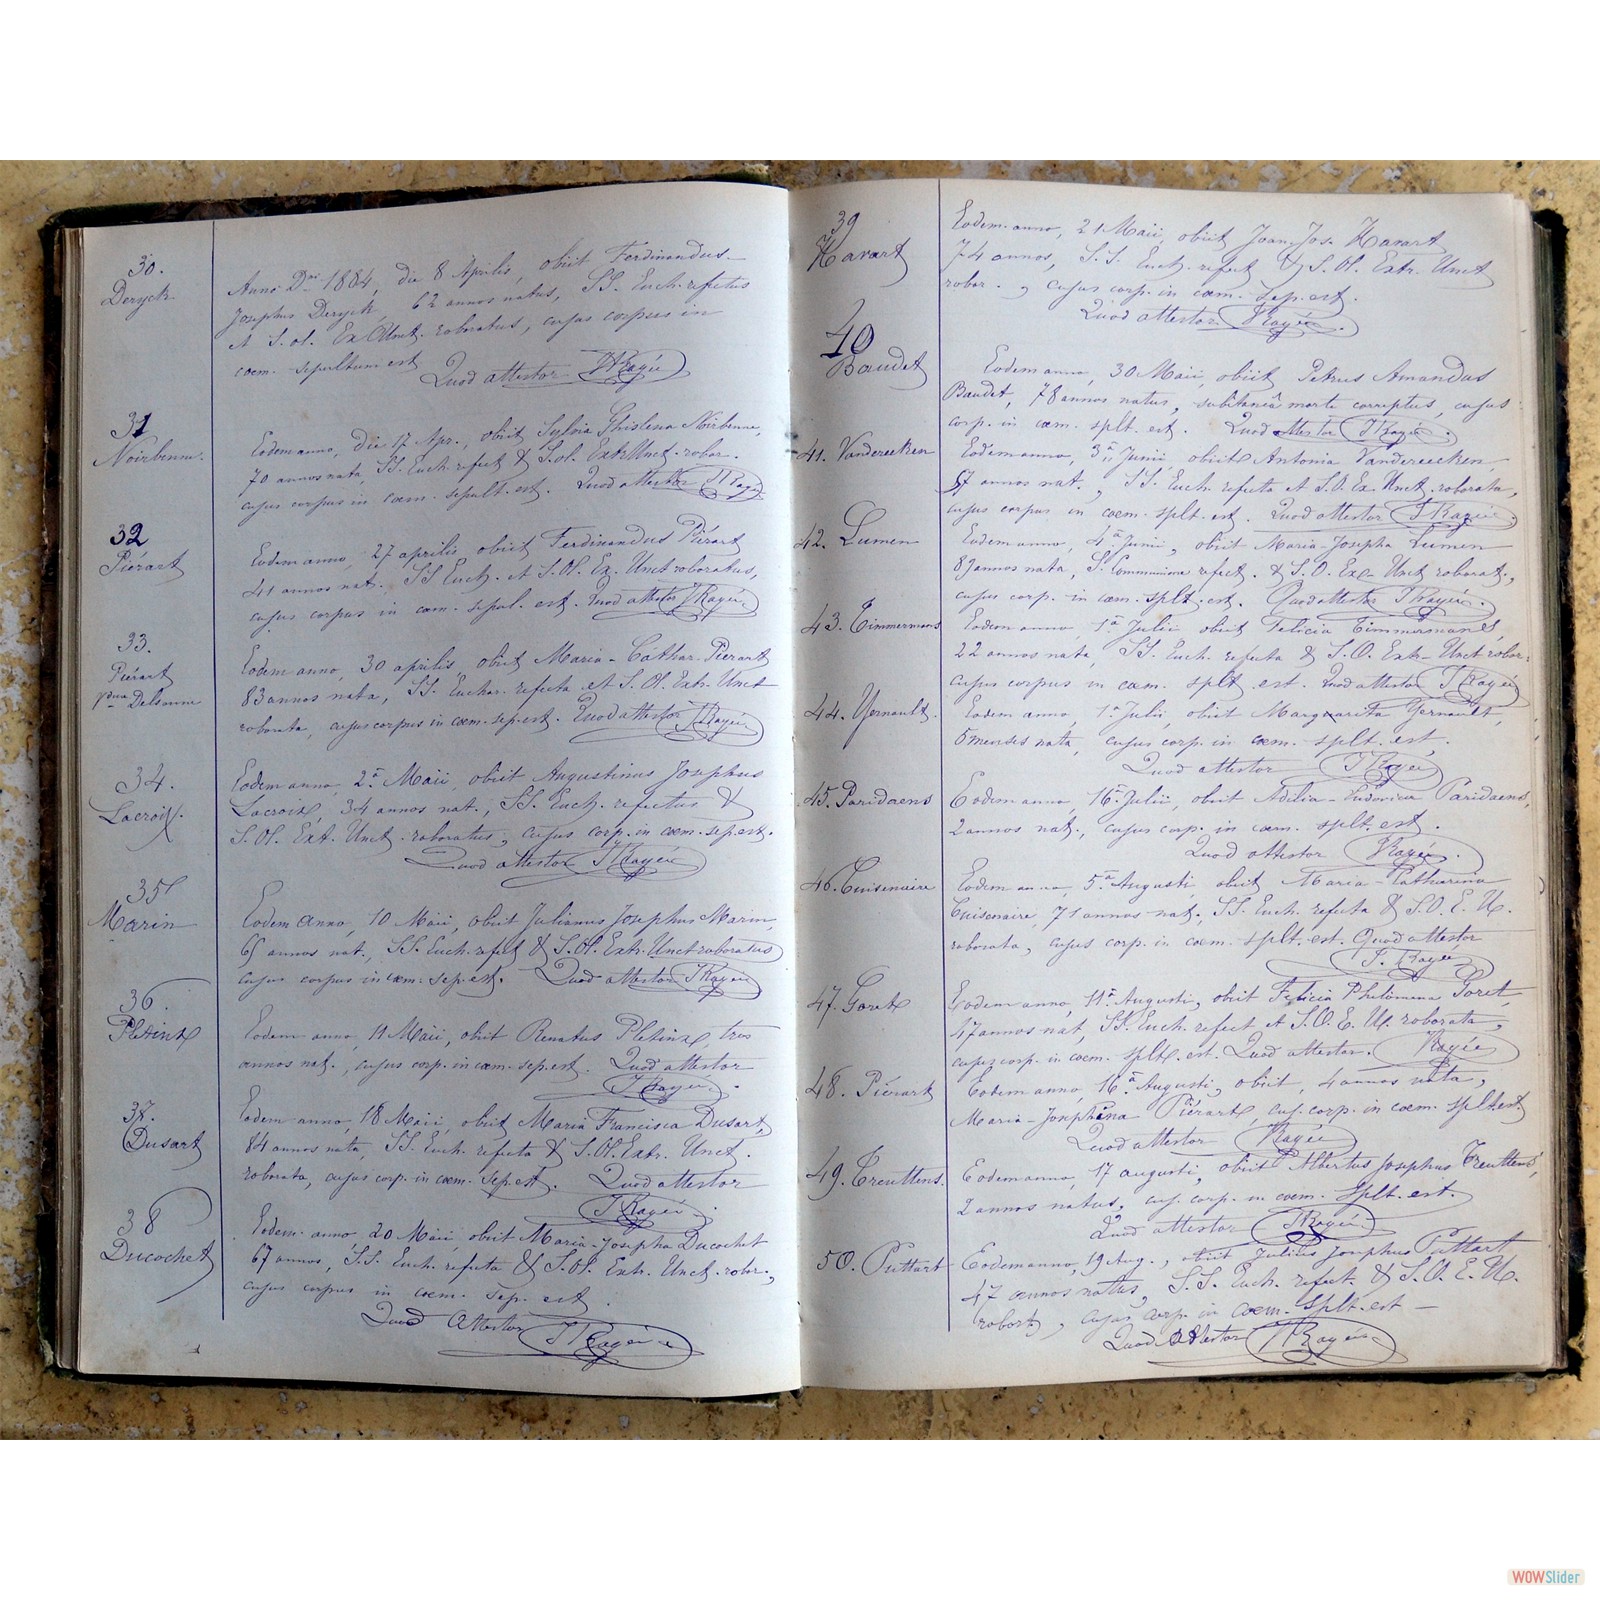 30.
Deryck
Anno Dni 1884, die 8 Aprilis, obiit Ferdinandus-
Josephus Deryck, 62 annos natus, SS. Euch. refectus
et S. ol. Ex. Unct. roboratus, cujus corpus in
coem. sepultum est Quod attestor
31
Noirbenne.
Eodem anno, die 17 Apr., obiit Sylvia Ghislena Noirbenne,
70 annos nata, SS. Euch. refect & S. ol. Extr. Unct. robor.
cujus corpus in coem. sepult. est. Quod attestor
32
Piérart
Eodem anno, 27 aprilis obiit Ferdinandus Piérart
41 annos nat. SS Euch. et S. Ol. Ex. Unct roboratus,
cujus corpus in coem. sepul. est. Quod attestor
33.
Piérart
Eodem anno, 30 aprilis, obiit Maria-Cathar. Piérart
83 annos nata, SS. Euchar. refecta et S. Ol. Extr. Unct
roborata, cujus corpus in coem. sep. est. Quod attestor
34.
Lacroix.
Eodem anno, 2ª Maii, obiit Augustinus Josephus
Lacroix, 34 annos nat., SS. Euch. refectus &
S. Ol. Ext. Unct. roboratus, cujus corp. in coem. sep. est.
Quod attestor
35
Marin
Eodem anno, 10 Maii, obiit Julianus Josephus Marin,
annos nat., SS. Euch. refect & S. Ol. Extr. Unct roboratus
cujus corpus in coem. sep. est. Quod attestor
36.
Pletinx
Eodem anno, 11 Maii, obiit Renatus Pletinx, tres
annos nat., cujus corp. in coem. sep. est. Quod attestor
37.
Dusart
Eodem anno, 18 Maii, obiit Maria Francisca Dusart,
84 annos nata, SS. Euch. refecta & S. Ol. Extr. Unct.
roborata, cujus corp. in coem. sep. est. Quod attestor
38
Ducochet
Eodem anno, 20 Maii, obiit Maria-Josepha Ducochet
67 annos, S.S. Euch. refecta & S. Ol. Extr. Unct. robor.,
cujus corpus in coem. sep. est.
Quod Attestor
39
Havart
Eodem anno, 21 Maii, obiit Joan. Jos. Havart
74 annos, S.S. Euch. refect & S. Ol. Extr. Unct
robor., cujus corp. in coem. sep. est.
Quod attestor
40
Baudet
Eodem anno, 30 Maii, obiit Petrus Amandus
Baudet, 78 annos natus, subitanea morte correptus, cujus
corp. in coem. splt. est. Quod attestor
41. Vandereecken
Eodem anno, 3ª Junii, obiit Antonia Vandereecken,
67 annos nat., SS. Euch. refecta et S. O. Ex. Unct. roborata,
cujus corpus in coem. splt. est. Quod attestor
42. Lumen
Eodem anno, 4ª Junii, obiit Maria-Josepha Lumen
annos nata, S. Communione refect. & S. O. Ex. Unct roborat.,
cujus corp. in coem. splt. est. Quod attestor
43. Timmermans
Eodem anno, 1ª Julii obiit Felicia Timmermans,
22 annos nata, SS. Euch. refecta & S. O. Ext. Unct robor.
cujus corpus in coem. splt. est. Quod attestor
44. Yernault.
Eodem anno, 1ª Julii, obiit Marguarita Yernault,
5 menses nata, cujus corp. in coem. splt. est.
Quod attestor
45. Paridaens
Eodem anno, 16ª Julii, obiit Adilia-Ludovica Paridaens,
2 annos nat., cujus corp. in coem. splt. est.
Quod attestor
46. Cuisenaire
Eodem anno, 5ª Augusti obiit Maria-Catharina
Cuisenaire, 71 annos nat., SS. Euch. refecta & S. O. E. U.
roborata, cujus corp. in coem. splt. est. Quod attestor
47. Goret
Eodem anno, 11ª Augusti, obiit Felicia Philomena Goret,
47 annos nat, SS. Euch. refect. et S. O. E. U. roborata,
cujus corp. in coem. splt. est. Quod attestor.
48. Piérart
Eodem anno, 16ª Augusti, obiit, 4 annos nata,
Maria-Josephina Piérart, cuj. corp. in coem. splt. est
Quod attestor
49. Creuttens.
Eodem anno, 17 augusti, obiit Albertus Josephus Creuttens,
2 annos natus, cuj. corp. in coem. splt. est.
Qd attestor
50. Puttart
Eodem anno, 19 Aug., obiit Julius Josephus Puttart
47 annos natus, S.S. Euch. refect. & S. O. E. U.
robort, cujus corp. in coem. splt. est —
Quod attestor
WOWSlider